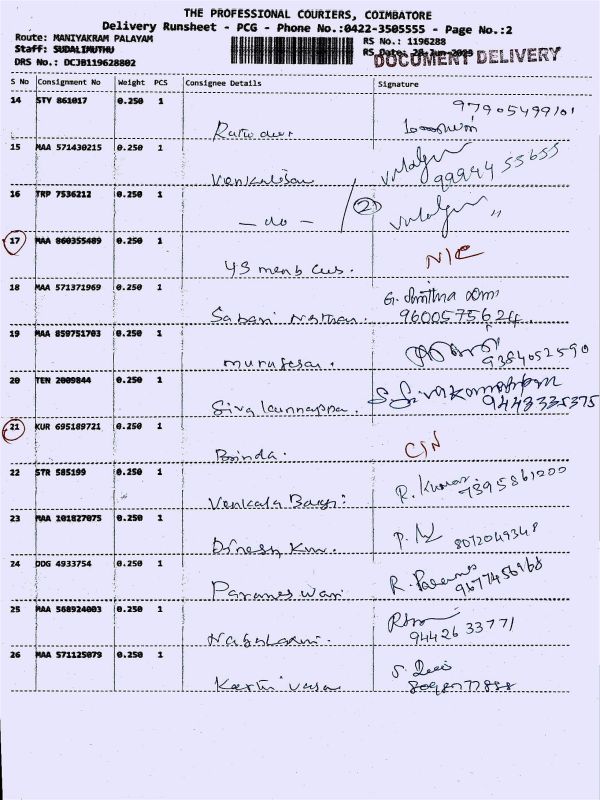 THE PROFESSIONAL COURIERS, COIMBATORE
Delivery Runsheet - PCG - Phone No.:0422-3505555 - Page No.:2
Route: MANIYAKRAM PALAYAM
RS No.: 1196288
Staff: SUDALIMUTHU
RS Date: 28-Jun-2023
DOCUMENT DELIVERY
DRS No.: DCJB119628802
S No Consignment No Weight PCS Consignee Details Signature
14 STY 861017 0.250 1
97905499101
15 MAA 571430215 0.250 1
Venkatesan 99944 55655
16 TRP 7536212 0.250 1
— do — 2 "
17 MAA 860355489 0.250 1
N/C
18 MAA 571371969 0.250 1
Sabari Nathan 9600575624
19 MAA 859751703 0.250 1
Murugesan. 9384052590
20 TEN 2009844 0.250 1
Sivakannappa. S. Sivakannappan
9443335375
21 KUR 695189721 0.250 1
Brinda. C/N
22 STR 585199 0.250 1
R. Kumar
7395861200
23 MAA 101827075 0.250 1
Dinesh Km. 8072049348
24 DDG 4933754 0.250 1
Parameswari 9677456968
25 MAA 568924003 0.250 1
Nagalaxmi. 9442633771
26 MAA 571125079 0.250 1